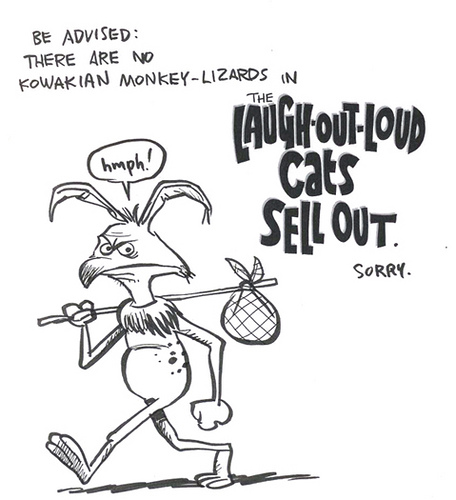 BE ADVISED:
THERE ARE NO
KOWAKIAN MONKEY-LIZARDS IN
THE
LAUGH-OUT-LOUD
CATS
SELL OUT.
SORRY.
hmph!